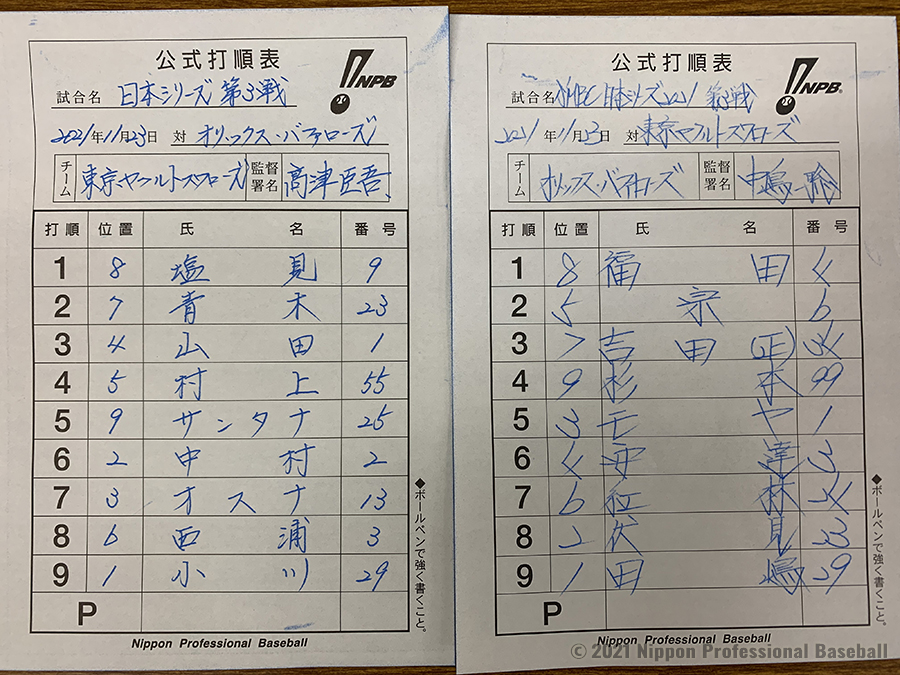 公式打順表
NPB
試合名 日本シリーズ 第3戦
2021年11月23日 対 オリックス・バファローズ
チーム 東京ヤクルトスワローズ 監督署名 高津臣吾
打順 位置 氏名 番号
1 8 塩見 9
2 7 青木 23
3 4 山田 1
4 5 村上 55
5 9 サンタナ 25
6 2 中村 2
7 3 オスナ 13
8 6 西浦 3
9 1 小川 29
P
◆ボールペンで強く書くこと。
Nippon Professional Baseball
公式打順表
NPB
試合名 SMBC日本シリーズ2021 第3戦
2021年11月23日 対 東京ヤクルトスワローズ
チーム オリックス・バファローズ 監督署名 中嶋聡
打順 位置 氏名 番号
1 8 福田 4
2 5 宗 6
3 7 吉田(正) 34
4 9 杉本 99
5 3 モヤ 1
6 4 安達 3
7 6 紅林 24
8 2 伏見 23
9 1 田嶋 29
P
◆ボールペンで強く書くこと。
Nippon Professional Baseball
© 2021 Nippon Professional Baseball